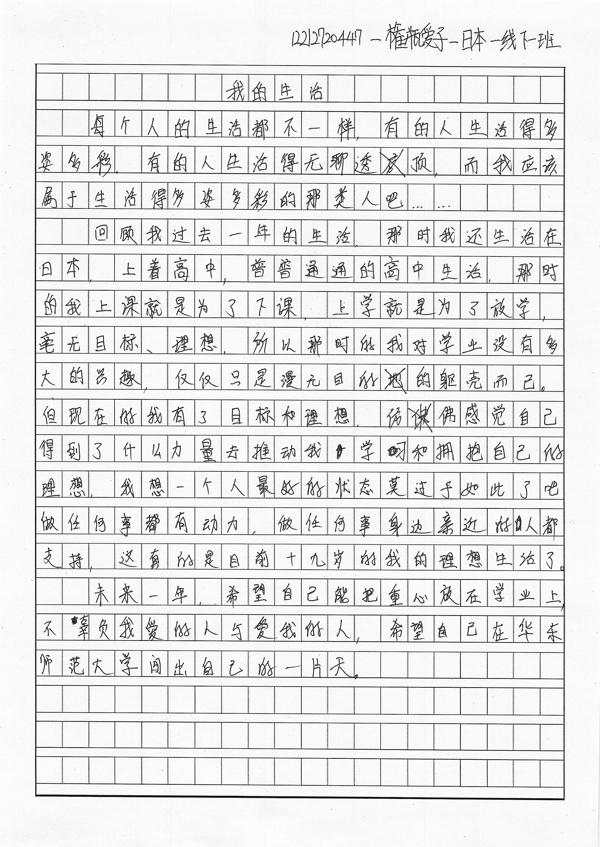 12212720447-権瓶愛子-日本-线下一班
我的生活
每个人的生活都不一样，有的人生活得多
姿多彩，有的人生活得无聊透顶，而我应该
属于生活得多姿多彩的那类人吧……
回顾我过去一年的生活，那时我还生活在
日本，上着高中，普普通通的高中生活，那时
的我上课就是为了下课，上学就是为了放学，
毫无目标、理想，所以那时的我对学业没有多
大的兴趣，仅仅只是漫无目的的躯壳而已。
但现在的我有了目标和理想，仿佛感觉自己
得到了什么力量去推动我学习和拥抱自己的
理想，我想一个人最好的状态莫过于如此了吧
做任何事都有动力，做任何事身边亲近的人都
支持，这有的是目前十九岁的我的理想生活了。
未来一年，希望自己能把重心放在学业上，
不辜负我爱的人与爱我的人，希望自己在华东
师范大学闯出自己的一片天。